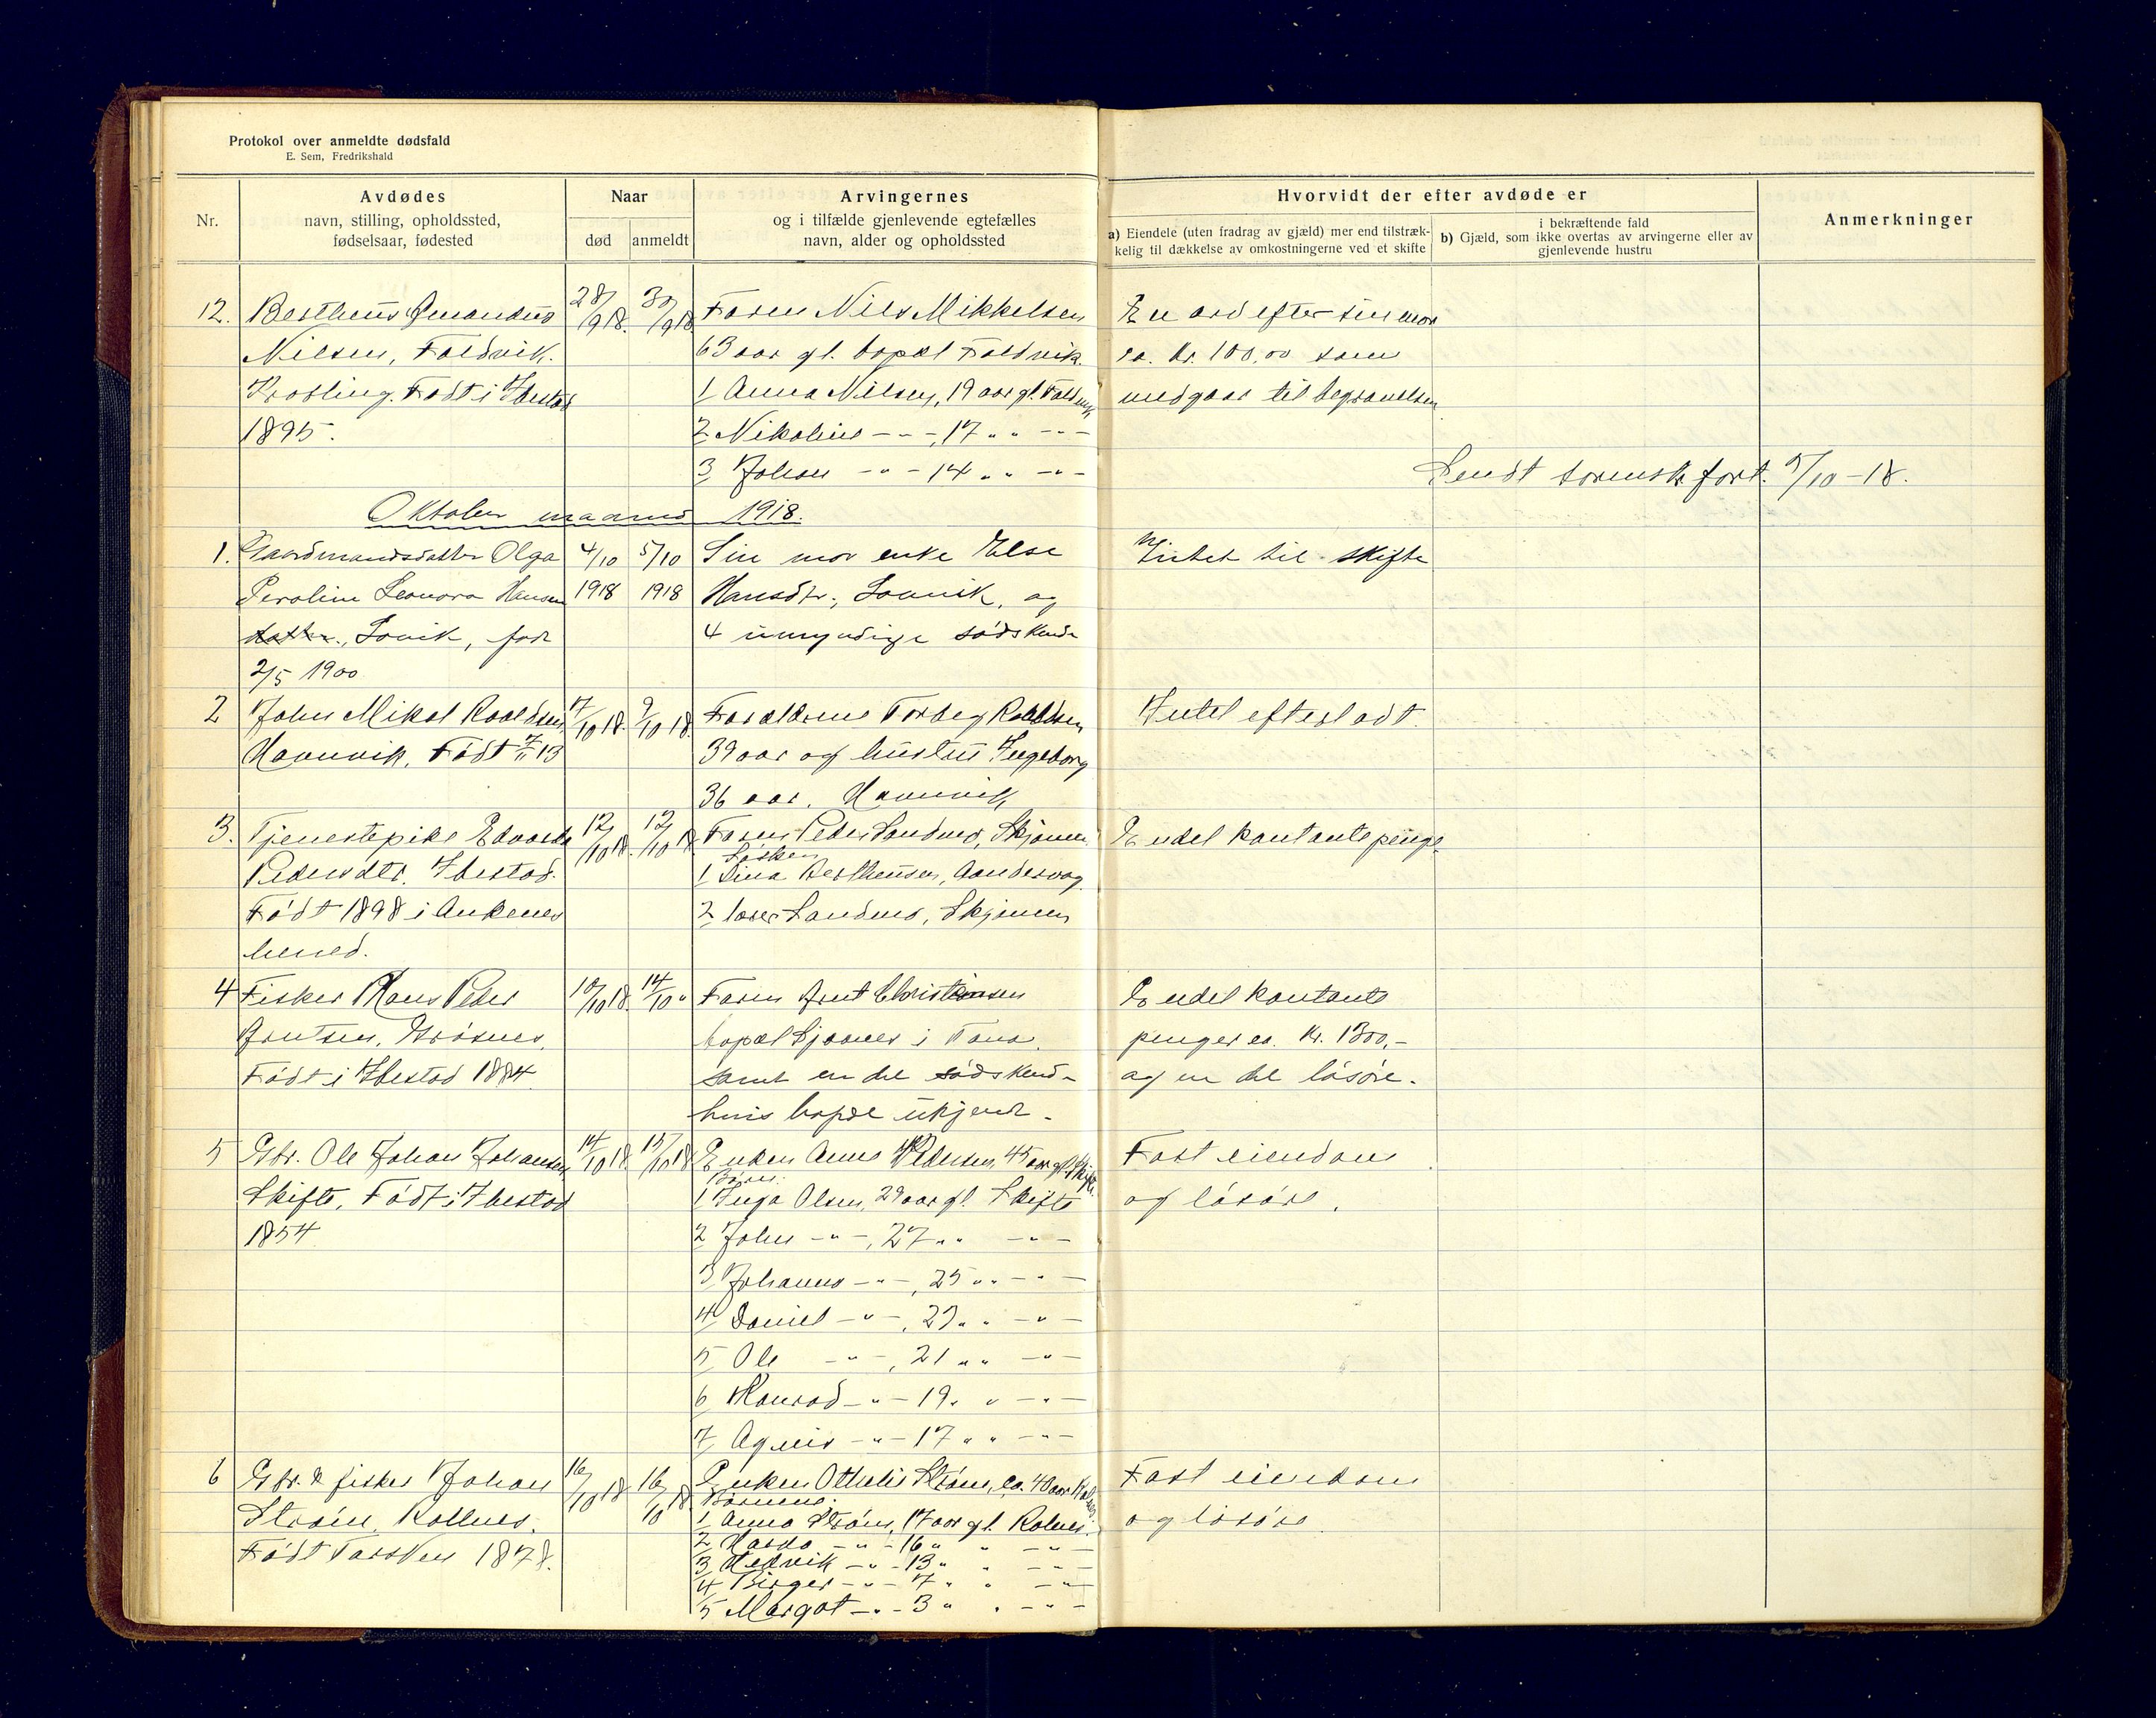 Protokol over anmeldte dødsfald
E. Sem, Fredrikshald
Nr.
Avdødes
navn, stilling, opholdssted,
fødselsaar, fødested
Naar
død
anmeldt
Arvingernes
og i tilfælde gjenlevende egtefælles
navn, alder og opholdssted
Hvorvidt der efter avdøde er
a) Eiendele (uten fradrag av gjæld) mer end tilstræk-
kelig til dækkelse av omkostningerne ved et skifte
i bekræftende fald
b) Gjæld, som ikke overtas av arvingerne eller av
gjenlevende hustru
Anmerkninger
12. Bertheus Amandus
Nilsen, Foldvik.
Født i Ibestad
1895.
28/9 18.
30/9 18
Faren Nils Mikkelsen
63 aar gl. bopæl Foldvik.
1 Anna Nilsen, 19 aar gl. Foldvik
2 Nikolius - " -, 17 " " - " -
3 Johan - " - 14 " " - " -
En arv efter sin mor
ca. kr. 100,00 som
medgaar til begravelsen
Sendt sorenskr. fort. 5/10-18.
Oktober maaned 1918.
1. Gaardmandsdatter Olga
Peroline Leonora Hansen
datter, Sovik, født
2/5 1900
4/10 1918
5/10 1918
Sin mor enke Else
Hansdtr., Sovik, og
4 umyndige sødskende
Intet til skifte
2 John Mikal Roaldsen
Hamnvik. Født 7/11 13
7/10 18.
9/10 18.
Forældrene Torberg Roaldsen
39 aar og hustru Ingeborg
36 aar. Hamnvik
Intet efterladt.
3. Tjenestepike Edvarda
Pedersdtr. Ibestad.
Født 1898 i Ankenes
herred.
12/10 18.
12/10 18
Faren Peder Sandmo, Skjomen
Søsken
1 Dina Bertheusen, Aandervag.
2 Sandmo, Skjomen
Endel kontante penge
4 Fisker Hans Peder
Arntsen, Grøsnes.
Født i Ibestad 1884.
10/10 18.
14/10 "
Faren Arnt Christensen
bopæl Sjaanes i Tana.
samt en del sødskend-
hvis bopæl ukjendt -
Endel kontante
penger ca. Kr. 1300,-
og en del løsøre.
5 Gbr. Ole Johan Johansen
Skifte, Født i Ibestad
1854
14/10 18.
15/10 18
Enken Anne Pedersen, 45 aar gl. Skifte
Børn:
1 Inga Olsen, 29 aar gl. Skifte
2 John - " -, 27 " " - " -
3 Johannes - " -, 25 " " - " -
4 Daniel - " -, 23 " " - " -
5 Ole - " -, 21 " " - " -
6 Konrad - " - 19 " " - " -
7 Agnes - " - 17 " " - " -
Fast eiendom
og løsøre.
6 Gbr. & fisker Johan
Strøm, Rollnes.
Født Torsken 1878.
16/10 18
16/10 18
Enken Othelie Strøm, ca. 40 aar Rolnes
Børnene:
1 Anna Strøm, 17 aar gl. Rolnes.
2 Harda - " - 16 " " - " -
3 Hedvik - " - 13 " " - " -
4 Birger - " - 7 " " - " -
5 Margot - " - 3 " " - " -
Fast eiendom
og løsøre.